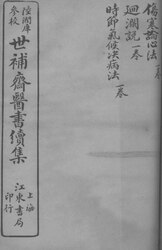 傷寒論心法 一卷
廻瀾說 一卷
時節氣候決病法 一卷
陸潤庠
參校
世補齋醫書續集
上海
江東書局
印行